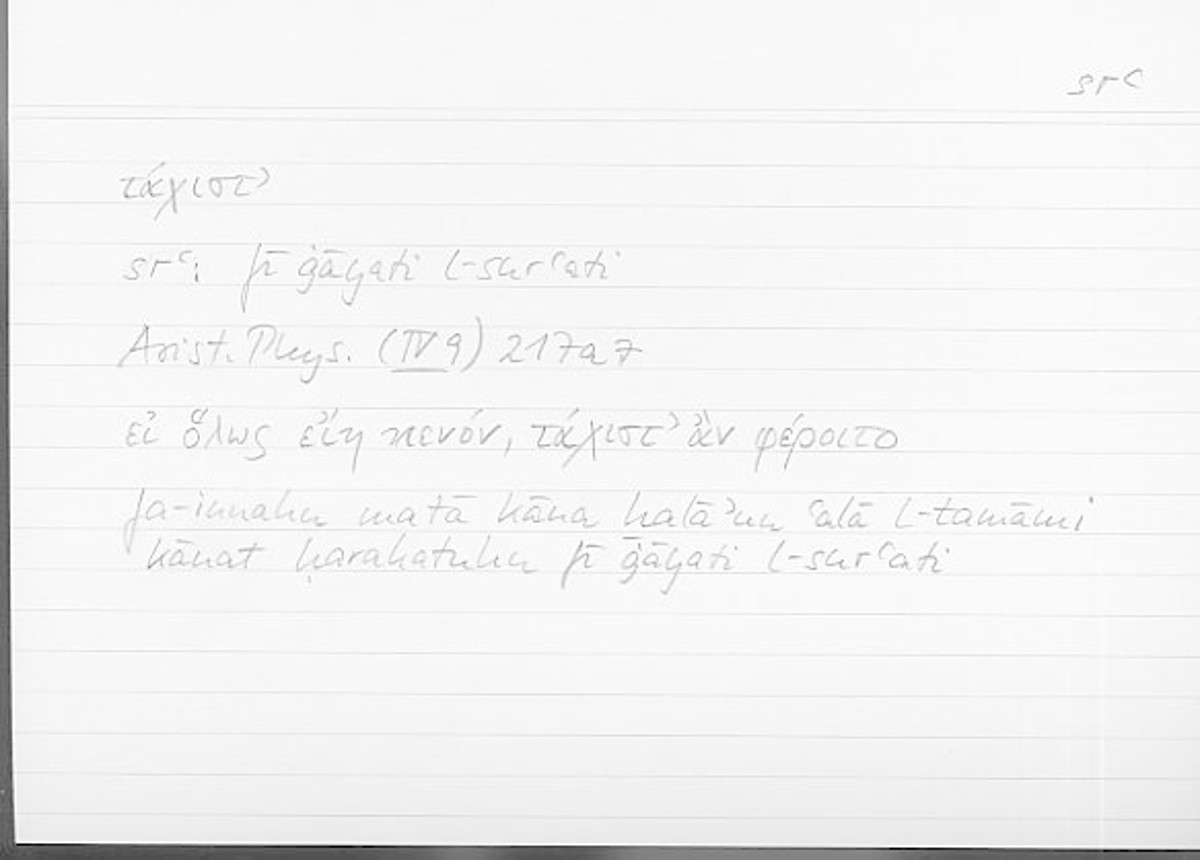 srʿ
τάχιστ᾽
srʿ: fī ġāyati l-surʿati
Arist. Phys. (IV 9) 217a7
εἰ ὅλως εἴη κενόν, τάχιστ᾽ ἂν φέροιτο
fa-innahu matā kāna ḫalāʾun ʿalā l-tamāmi
kānat ḥarakatuhu fī ġāyati l-surʿati